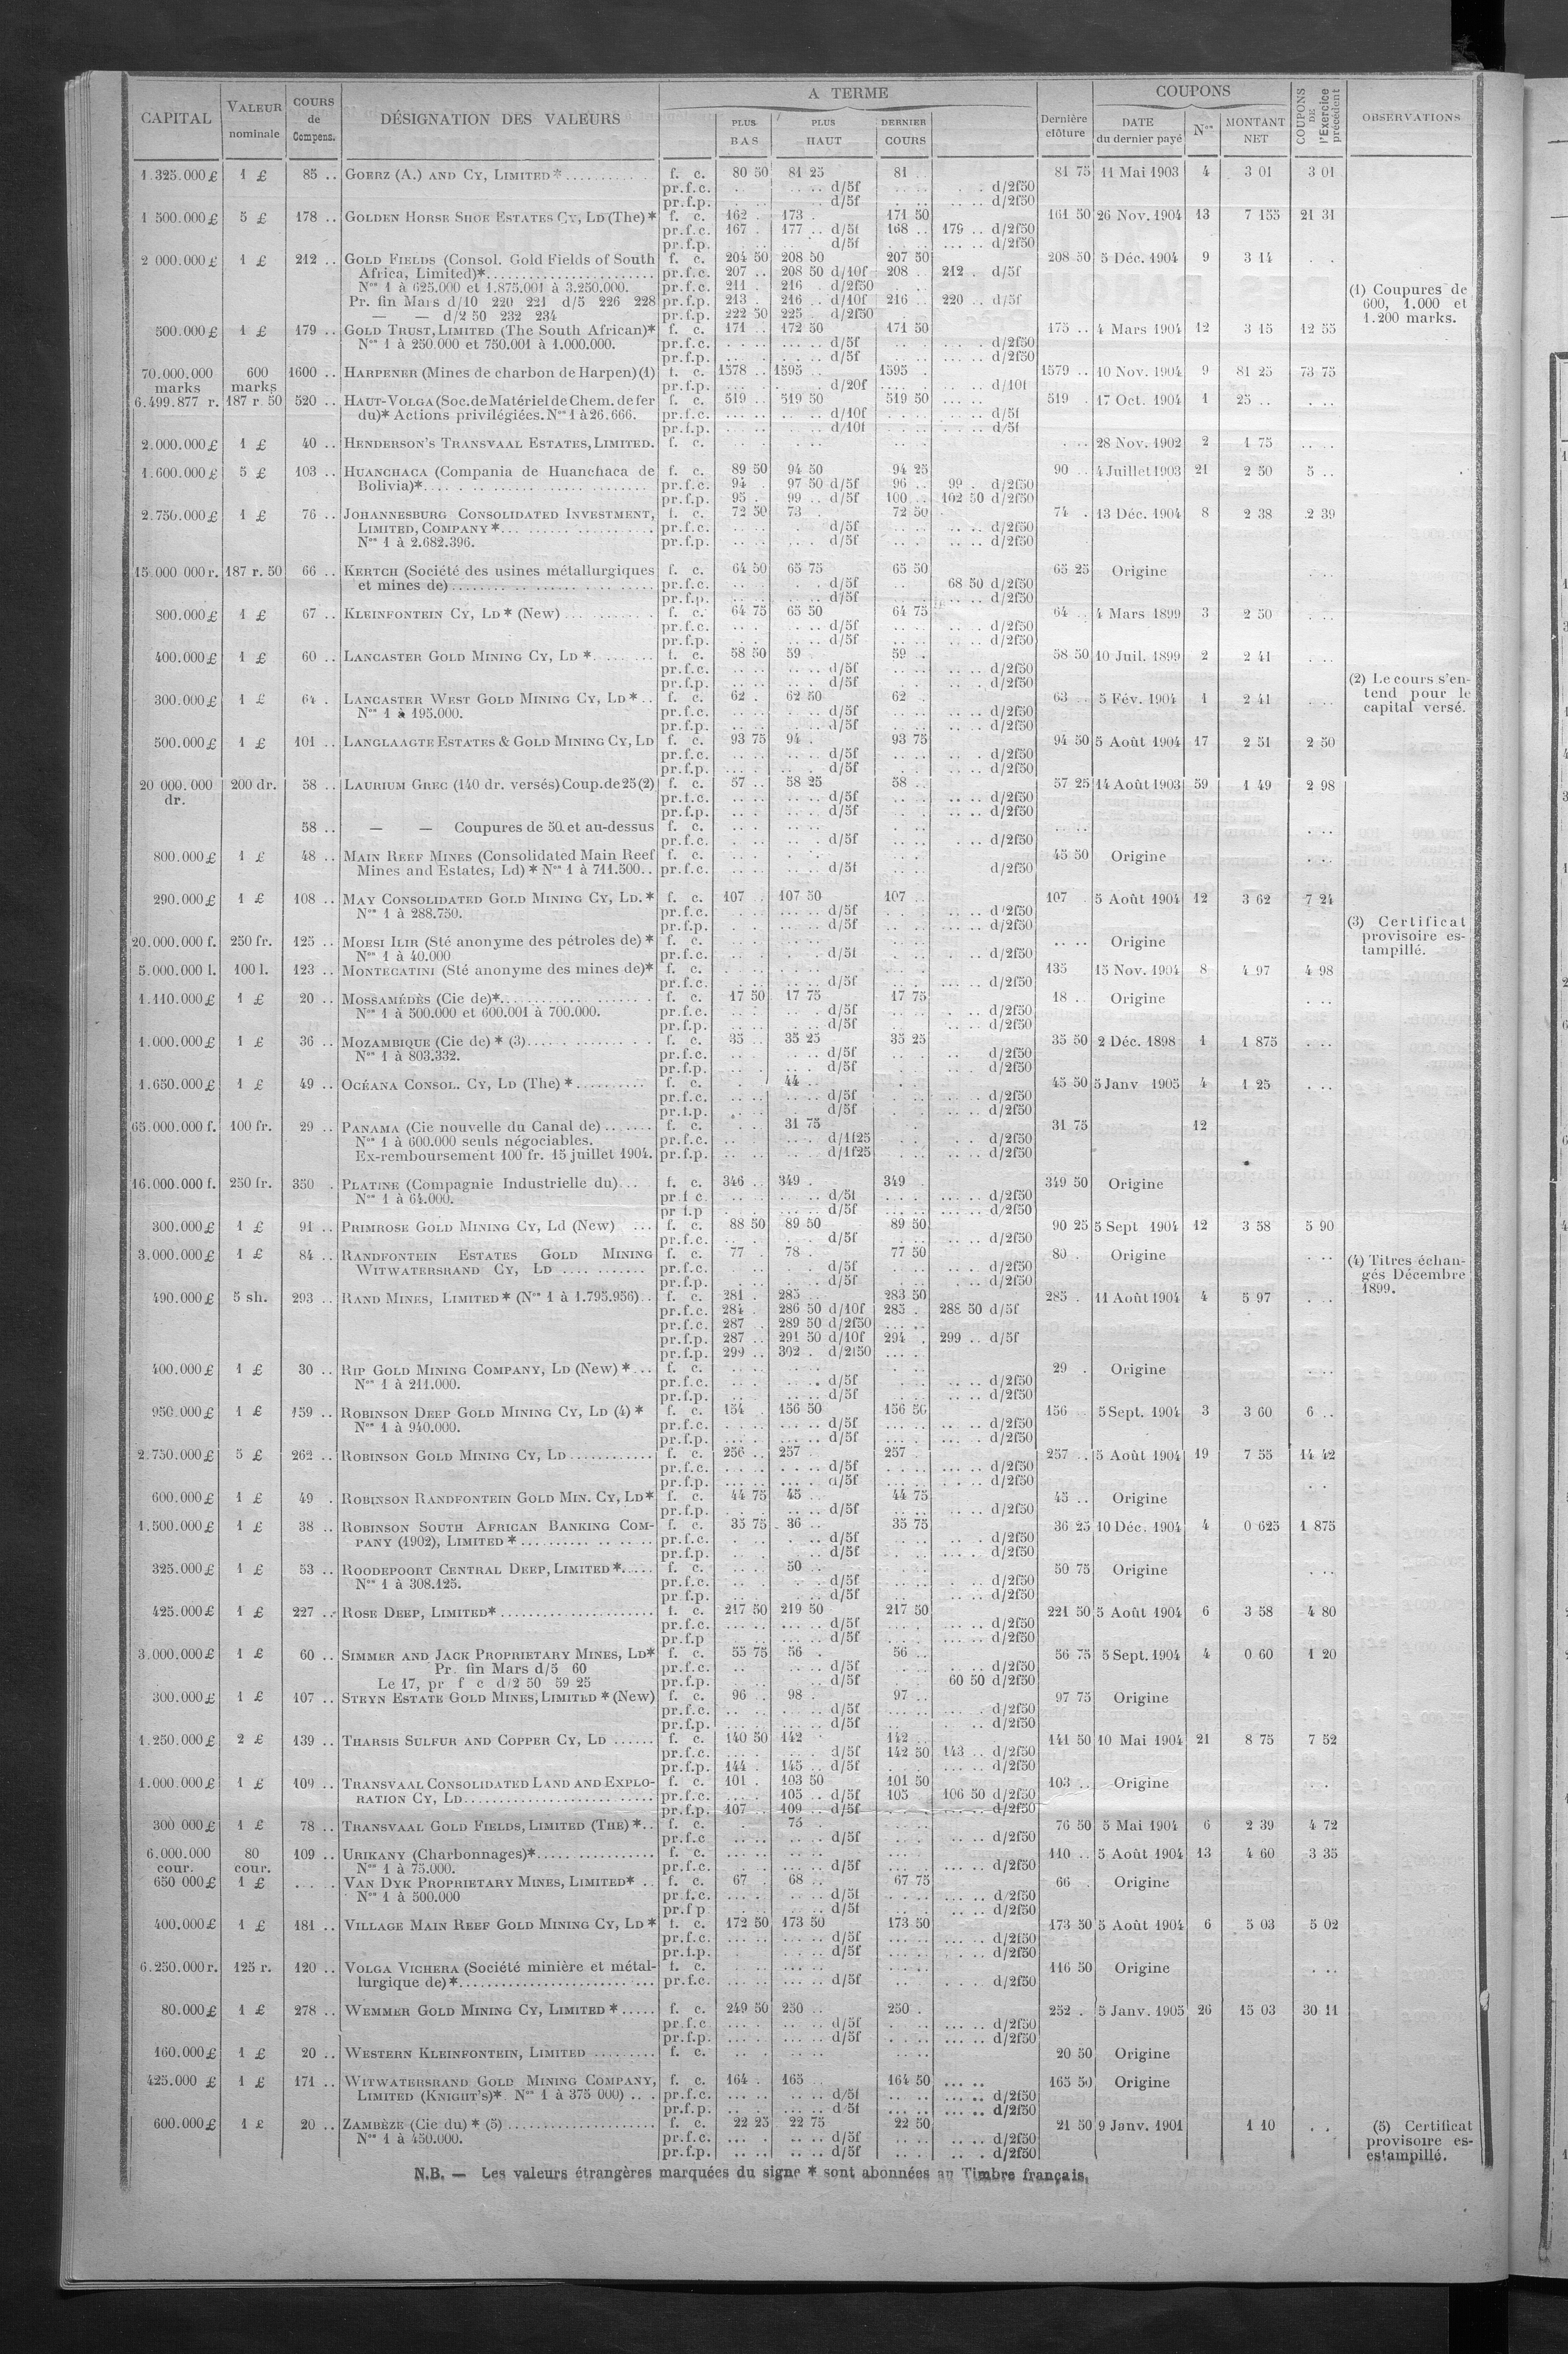 CAPITAL | VALEUR nominale | COURS de Compens. | DÉSIGNATION DES VALEURS | A TERME | PLUS BAS | PLUS HAUT | DERNIER COURS | Dernière clôture | COUPONS | DATE du dernier payé | Nos | MONTANT NET | COUPONS DE l'Exercice précédent | OBSERVATIONS
1.325.000 £ 1 £ 85 .. GOERZ (A.) AND CY, LIMITED * f. c. 80 50 81 25 81 81 75 11 Mai 1903 4 3 01 3 01
pr.f.c. d/5f d/2f50
pr.f.p. d/5f d/2f50
1 500.000 £ 5 £ 178 .. GOLDEN HORSE SHOE ESTATES CY, LD (The) * f. c. 162 173 171 50 161 50 26 Nov. 1904 13 7 155 21 31
pr.f.c. 167 177 d/5f 168 179 d/2f50
pr.f.p. d/5f d/2f50
2 000.000 £ 1 £ 212 .. GOLD FIELDS (Consol. Gold Fields of South f. c. 204 50 208 50 207 50 208 50 5 Déc. 1904 9 3 14
Africa, Limited)* pr.f.c. 207 208 50 d/10f 208 212 d/5f
Nos 1 à 625.000 et 1.875.001 à 3.250.000. pr.f.c. 211 216 d/2f50
Pr. fin Mars d/10 220 221 d/5 226 228 pr.f.p. 213 216 d/10f 216 220 d/5f
— — d/2 50 232 234 pr.f.p. 222 50 225 d/2f50
(1) Coupures de
600, 1.000 et
1.200 marks.
500.000 £ 1 £ 179 .. GOLD TRUST, LIMITED (The South African)* f. c. 171 172 50 171 50 175 4 Mars 1904 12 3 15 12 55
Nos 1 à 250.000 et 750.001 à 1.000.000. pr.f.c. d/5f d/2f50
pr.f.p. d/5f d/2f50
70.000.000 marks 600 marks 1600 .. HARPENER (Mines de charbon de Harpen) (1) f. c. 1578 1595 1595 1579 10 Nov. 1904 9 81 25 73 75
pr.f.p. d/20f d/10f
6.499.877 r. 187 r. 50 520 .. HAUT-VOLGA (Soc. de Matériel de Chem. de fer f. c. 519 519 50 519 50 519 17 Oct. 1904 1 25
du)* Actions privilégiées. Nos 1 à 26.666. pr.f.c. d/10f d/5f
pr.f.p. d/10f d/5f
2.000.000 £ 1 £ 40 .. HENDERSON'S TRANSVAAL ESTATES, LIMITED. f. c. 28 Nov. 1902 2 1 75
1.600.000 £ 5 £ 103 .. HUANCHACA (Compania de Huanchaca de f. c. 89 50 94 50 94 25 90 4 Juillet 1903 21 2 50 5
Bolivia)* pr.f.c. 94 97 50 d/5f 96 99 d/2f50
pr.f.p. 95 99 d/5f 100 102 50 d/2f50
2.750.000 £ 1 £ 76 .. JOHANNESBURG CONSOLIDATED INVESTMENT, f. c. 72 50 73 72 50 74 13 Déc. 1904 8 2 38 2 39
LIMITED, COMPANY * pr.f.c. d/5f d/2f50
Nos 1 à 2.682.396. pr.f.p. d/5f d/2f50
15.000 000 r. 187 r. 50 66 .. KERTCH (Société des usines métallurgiques f. c. 64 50 65 75 65 50 65 25 Origine
et mines de) pr.f.c. d/5f 68 50 d/2f50
pr.f.p. d/5f d/2f50
800.000 £ 1 £ 67 .. KLEINFONTEIN CY, LD * (New) f. c. 64 75 65 50 64 75 64 4 Mars 1899 3 2 50
pr.f.c. d/5f d/2f50
pr.f.p. d/5f d/2f50
400.000 £ 1 £ 60 .. LANCASTER GOLD MINING CY, LD * f. c. 58 50 59 59 58 50 10 Juil. 1899 2 2 41
pr.f.c. d/5f d/2f50
pr.f.p. d/5f d/2f50
300.000 £ 1 £ 64 . LANCASTER WEST GOLD MINING CY, LD * f. c. 62 62 50 62 63 5 Fév. 1904 1 2 41
Nos 1 à 195.000. pr.f.c. d/5f d/2f50
pr.f.p. d/5f d/2f50
(2) Le cours s'en-
tend pour le
capital versé.
500.000 £ 1 £ 101 .. LANGLAAGTE ESTATES & GOLD MINING CY, LD f. c. 93 75 94 93 75 94 50 5 Août 1904 17 2 51 2 50
pr.f.c. d/5f d/2f50
pr.f.p. d/5f d/2f50
20 000.000 dr. 200 dr. 58 .. LAURIUM GREC (140 dr. versés) Coup. de 25 (2) f. c. 57 58 25 58 57 25 14 Août 1903 59 1 49 2 98
pr.f.c. d/5f d/2f50
pr.f.p. d/5f d/2f50
58 .. — — Coupures de 50 et au-dessus f. c.
pr.f.c. d/5f d/2f50
800.000 £ 1 £ 48 .. MAIN REEF MINES (Consolidated Main Reef f. c. 45 50 Origine
Mines and Estates, Ld) * Nos 1 à 711.500.. pr.f.c. d/5f d/2f50
290.000 £ 1 £ 108 .. MAY CONSOLIDATED GOLD MINING CY, LD. * f. c. 107 107 50 107 107 5 Août 1904 12 3 62 7 24
Nos 1 à 288.750. pr.f.c. d/5f d/2f50
pr.f.p. d/5f d/2f50
20.000.000 f. 250 fr. 125 .. MOESI ILIR (Sté anonyme des pétroles de) * f. c. Origine
Nos 1 à 40.000 pr.f.c. d/5f d/2f50
(3) Certificat
provisoire es-
tampillé.
5.000.000 l. 100 l. 123 .. MONTECATINI (Sté anonyme des mines de)* f. c. 135 15 Nov. 1904 8 4 97 4 98
pr.f.c. d/5f d/2f50
1.110.000 £ 1 £ 20 .. MOSSAMÉDÈS (Cie de)* f. c. 17 50 17 75 17 75 18 Origine
Nos 1 à 500.000 et 600.001 à 700.000. pr.f.c. d/5f d/2f50
pr.f.p. d/5f d/2f50
1.000.000 £ 1 £ 36 .. MOZAMBIQUE (Cie de) * (3) f. c. 35 35 25 35 25 35 50 2 Déc. 1898 1 1 875
Nos 1 à 803.332. pr.f.c. d/5f d/2f50
pr.f.p. d/5f d/2f50
1.650.000 £ 1 £ 49 .. OCÉANA CONSOL. CY, LD (The) * f. c. 44 45 50 5 Janv 1905 4 1 25
pr.f.c. d/5f d/2f50
pr.f.p. d/5f d/2f50
65.000.000 f. 100 fr. 29 .. PANAMA (Cie nouvelle du Canal de) f. c. 31 75 31 75 12
Nos 1 à 600.000 seuls négociables. pr.f.c. d/1f25 d/2f50
Ex-remboursement 100 fr. 15 juillet 1904. pr.f.p. d/1f25 d/2f50
16.000.000 f. 250 fr. 350 . PLATINE (Compagnie Industrielle du) f. c. 346 349 349 349 50 Origine
Nos 1 à 64.000. pr.f.c. d/5f d/2f50
pr f.p d/5f d/2f50
300.000 £ 1 £ 91 .. PRIMROSE GOLD MINING CY, Ld (New) f. c. 88 50 89 50 89 50 90 25 5 Sept 1904 12 3 58 5 90
pr.f.c. d/5f d/2f50
3.000.000 £ 1 £ 84 .. RANDFONTEIN ESTATES GOLD MINING f. c. 77 78 77 50 80 Origine
WITWATERSRAND CY, LD pr.f.c. d/5f d/2f50
pr.f.p. d/5f d/2f50
(4) Titres échan-
gés Décembre
1899.
490.000 £ 5 sh. 293 .. RAND MINES, LIMITED * (Nos 1 à 1.795.956) f. c. 281 285 283 50 285 11 Août 1904 4 5 97
pr.f.c. 284 286 50 d/10f 285 288 50 d/5f
pr.f.c. 287 289 50 d/2f50
pr.f.p. 287 291 50 d/10f 294 299 d/5f
pr.f.p. 299 302 d/2f50
400.000 £ 1 £ 30 .. RIP GOLD MINING COMPANY, LD (New) * f. c. 29 Origine
Nos 1 à 211.000. pr.f.c. d/5f d/2f50
pr.f.p. d/5f d/2f50
950.000 £ 1 £ 159 .. ROBINSON DEEP GOLD MINING CY, LD (4) * f. c. 154 156 50 156 50 156 5 Sept. 1904 3 3 60 6
Nos 1 à 940.000. pr.f.c. d/5f d/2f50
pr.f.p. d/5f d/2f50
2.750.000 £ 5 £ 262 .. ROBINSON GOLD MINING CY, LD f. c. 256 257 257 257 5 Août 1904 19 7 55 14 42
pr.f.c. d/5f d/2f50
pr.f.p. d/5f d/2f50
600.000 £ 1 £ 49 . ROBINSON RANDFONTEIN GOLD MIN. CY, LD* f. c. 44 75 45 44 75 45 Origine
pr.f.p. d/5f d/2f50
1.500.000 £ 1 £ 38 .. ROBINSON SOUTH AFRICAN BANKING COM- f. c. 35 75 36 35 75 36 25 10 Déc. 1904 4 0 625 1 875
PANY (1902), LIMITED * pr.f.c. d/5f d/2f50
pr.f.p. d/5f d/2f50
325.000 £ 1 £ 53 .. ROODEPOORT CENTRAL DEEP, LIMITED * f. c. 50 50 75 Origine
Nos 1 à 308.125. pr.f.c. d/5f d/2f50
pr f.p. d/5f d/2f50
425.000 £ 1 £ 227 .. ROSE DEEP, LIMITED* f. c. 217 50 219 50 217 50 221 50 5 Août 1904 6 3 58 4 80
pr.f.c. d/5f d/2f50
pr.f.p d/5f d/2f50
3.000.000 £ 1 £ 60 .. SIMMER AND JACK PROPRIETARY MINES, LD* f. c. 55 75 56 56 56 75 5 Sept. 1904 4 0 60 1 20
Pr. fin Mars d/5 60 pr.f.c. d/5f d/2f50
Le 17, pr f c d/2 50 59 25 pr.f.p. d/5f 60 50 d/2f50
300.000 £ 1 £ 107 .. STEYN ESTATE GOLD MINES, LIMITED * (New) f. c. 96 98 97 97 75 Origine
pr.f.c. d/5f d/2f50
pr.f.p. d/5f d/2f50
1.250.000 £ 2 £ 139 .. THARSIS SULFUR AND COPPER CY, LD f. c. 140 50 142 142 141 50 10 Mai 1904 21 8 75 7 52
pr.f.c. d/5f 142 50 143 d/2f50
pr.f.p. 144 145 d/5f d/2f50
1.000.000 £ 1 £ 109 .. TRANSVAAL CONSOLIDATED LAND AND EXPLO- f. c. 101 103 50 101 50 103 Origine
RATION CY, LD pr.f.c. 105 d/5f 105 106 50 d/2f50
pr.f.p. 107 109 d/5f d/2f50
300 000 £ 1 £ 78 .. TRANSVAAL GOLD FIELDS, LIMITED (THE) * f. c. 75 76 50 5 Mai 1904 6 2 39 4 72
pr.f.c d/5f d/2f50
6.000.000 cour. 80 cour. 109 .. URIKANY (Charbonnages)* f. c. 110 5 Août 1904 13 4 60 3 35
Nos 1 à 75.000. pr.f.c. d/5f d/2f50
650 000 £ 1 £ VAN DYK PROPRIETARY MINES, LIMITED* f. c. 67 68 67 75 66 Origine
Nos 1 à 500.000 pr.f.c. d/5f d/2f50
pr.f p d/5f d/2f50
400.000 £ 1 £ 181 .. VILLAGE MAIN REEF GOLD MINING CY, LD * f. c. 172 50 173 50 173 50 173 50 5 Août 1904 6 5 03 5 02
pr.f.c. d/5f d/2f50
pr.f.p. d/5f d/2f50
6.250.000 r. 125 r. 120 .. VOLGA VICHERA (Société minière et métal- f. c. 116 50 Origine
lurgique de) * pr.f.c. d/5f d/2f50
80.000 £ 1 £ 278 .. WEMMER GOLD MINING CY, LIMITED * f. c. 249 50 250 250 252 5 Janv. 1905 26 15 03 30 11
pr.f.c d/5f d/2f50
pr.f.p. d/5f d/2f50
160.000 £ 1 £ 20 .. WESTERN KLEINFONTEIN, LIMITED f. c. 20 50 Origine
425.000 £ 1 £ 171 .. WITWATERSRAND GOLD MINING COMPANY, f. c. 164 165 164 50 165 50 Origine
LIMITED (KNIGHT'S)* Nos 1 à 375 000) pr.f.c. d/5f d/2f50
pr.f.p. d 5f d/2f50
600.000 £ 1 £ 20 .. ZAMBÈZE (Cie du) * (5) f. c. 22 25 22 75 22 50 21 50 9 Janv. 1901 1 10
Nos 1 à 450.000. pr.f.c. d/5f d/2f50
pr.f.p. d/5f d/2f50
(5) Certificat
provisoire es-
estampillé.
N.B. — Les valeurs étrangères marquées du signe * sont abonnées au Timbre français.